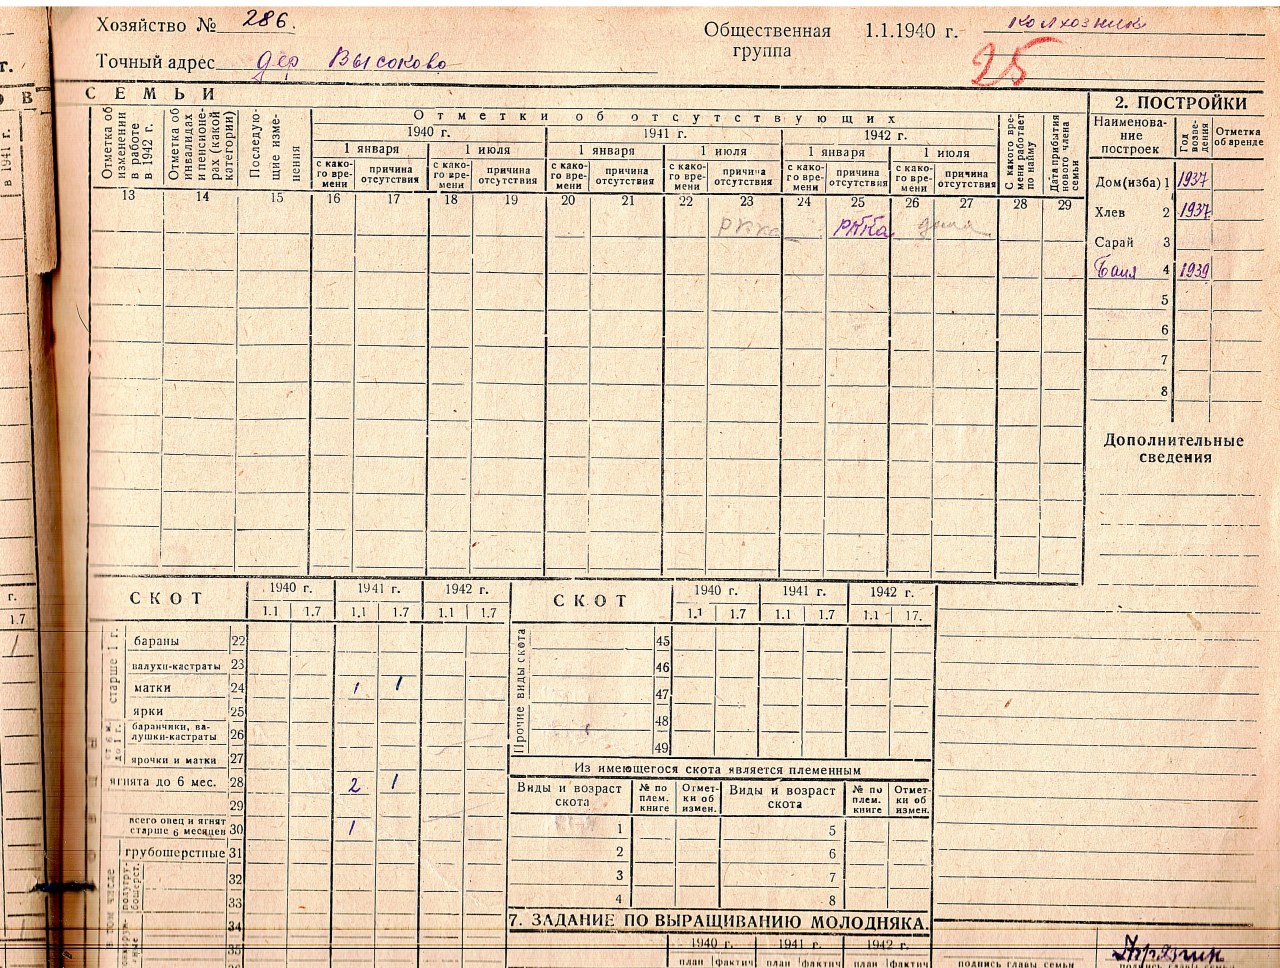 Хозяйство № 286.
Общественная группа 1.1.1940 г. колхозник
Точный адрес дер Высоково
25
г.
в 1941 г.
СЕМЬИ
Отметка об изменении в работе в 1942 г.
Отметка об инвалидах и пенсионерах (какой категории)
Последующие изменения
Отметки об отсутствующих
1940 г. 1941 г. 1942 г.
1 января 1 июля 1 января 1 июля 1 января 1 июля
с какого времени причина отсутствия с какого времени причина отсутствия с какого времени причина отсутствия с какого времени причина отсутствия с какого времени причина отсутствия с какого времени причина отсутствия
С какого времени работает по найму
Дата прибытия нового члена семьи
13 14 15 16 17 18 19 20 21 22 23 24 25 26 27 28 29
РККа РККа дома
2. ПОСТРОЙКИ
Наименование построек
Год возведения
Отметка об аренде
Дом (изба) 1 1937
Хлев 2 1937
Сарай 3
Баня 4 1939
5
6
7
8
Дополнительные сведения
г.
1.7
СКОТ 1940 г. 1941 г. 1942 г.
1.1 1.7 1.1 1.7 1.1 1.7
старше 1 г.
бараны 22
валухи-кастраты 23
матки 24 1 1
ярки 25
баранчики, валушки-кастраты 26
ярочки и матки 27
ягнята до 6 мес. 28 2 1
29
всего овец и ягнят старше 6 месяцев 30 1
грубошерстные 31
32
33
34
35
СКОТ 1940 г. 1941 г. 1942 г.
1.1 1.7 1.1 1.7 1.1 17.
Прочие виды скота
45
46
47
48
49
Из имеющегося скота является племенным
Виды и возраст скота № по плем. книге Отметки об измен. Виды и возраст скота № по плем. книге Отметки об измен.
1 5
2 6
3 7
4 8
7. ЗАДАНИЕ ПО ВЫРАЩИВАНИЮ МОЛОДНЯКА.
1940 г. 1941 г. 1942 г.
план фактич план фактич план фактич
подпись главы семьи